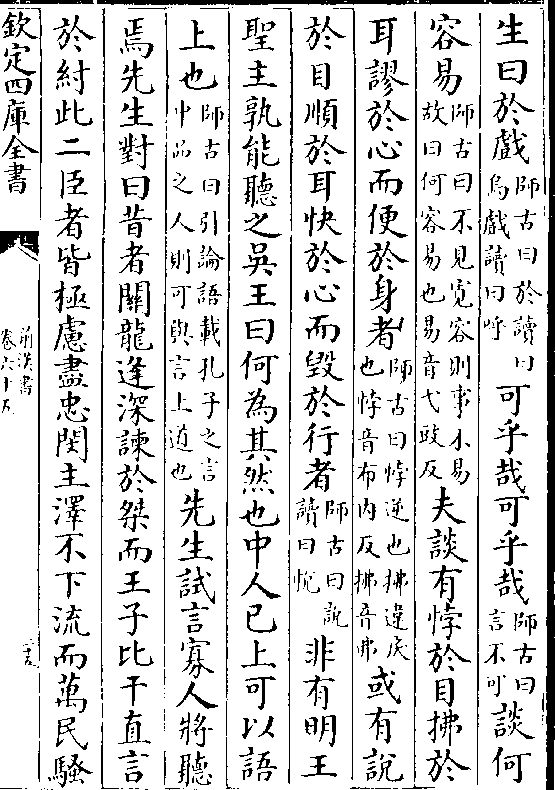 生曰於戲師古曰於讀曰烏戲讀曰呼可乎哉可乎哉師古曰言不可談何
容易師古曰不見寛容則事不易故曰何容易也易音弋豉反夫談有悖於目拂於
耳謬於心而便於身者師古曰悖逆也拂違戾也悖音布内反拂音佛或有說
於目順於耳快於心而毀於行者師古曰說讀曰悅非有明王
聖主孰能聽之吳王曰何為其然也中人已上可以語
上也師古曰引論語載孔子之言中品之人則可與言上道也先生試言寡人將聽
焉先生對曰昔者關龍逢深諫於桀而王子比干直言
於紂此二臣者皆極慮盡忠閔主澤不下流而萬民騷
欽定四庫全書
前漢書
卷六十五
二十五